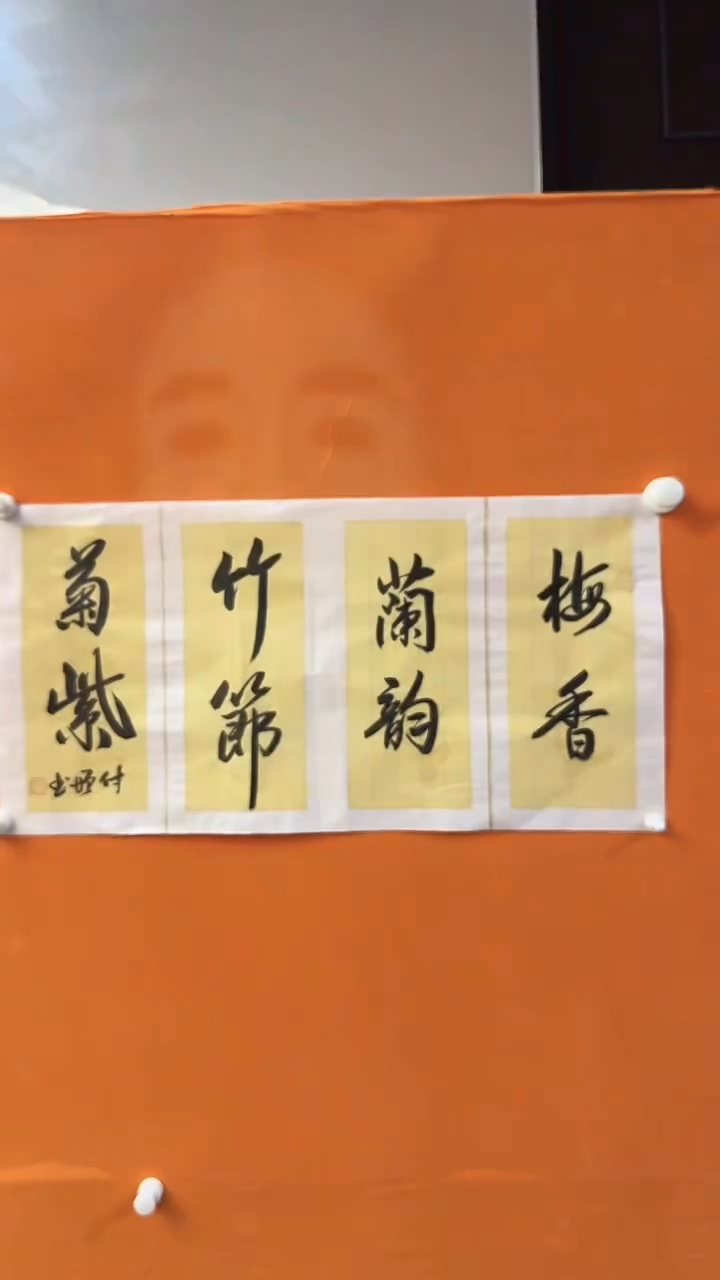 梅香
蘭韵
竹節
菊紫